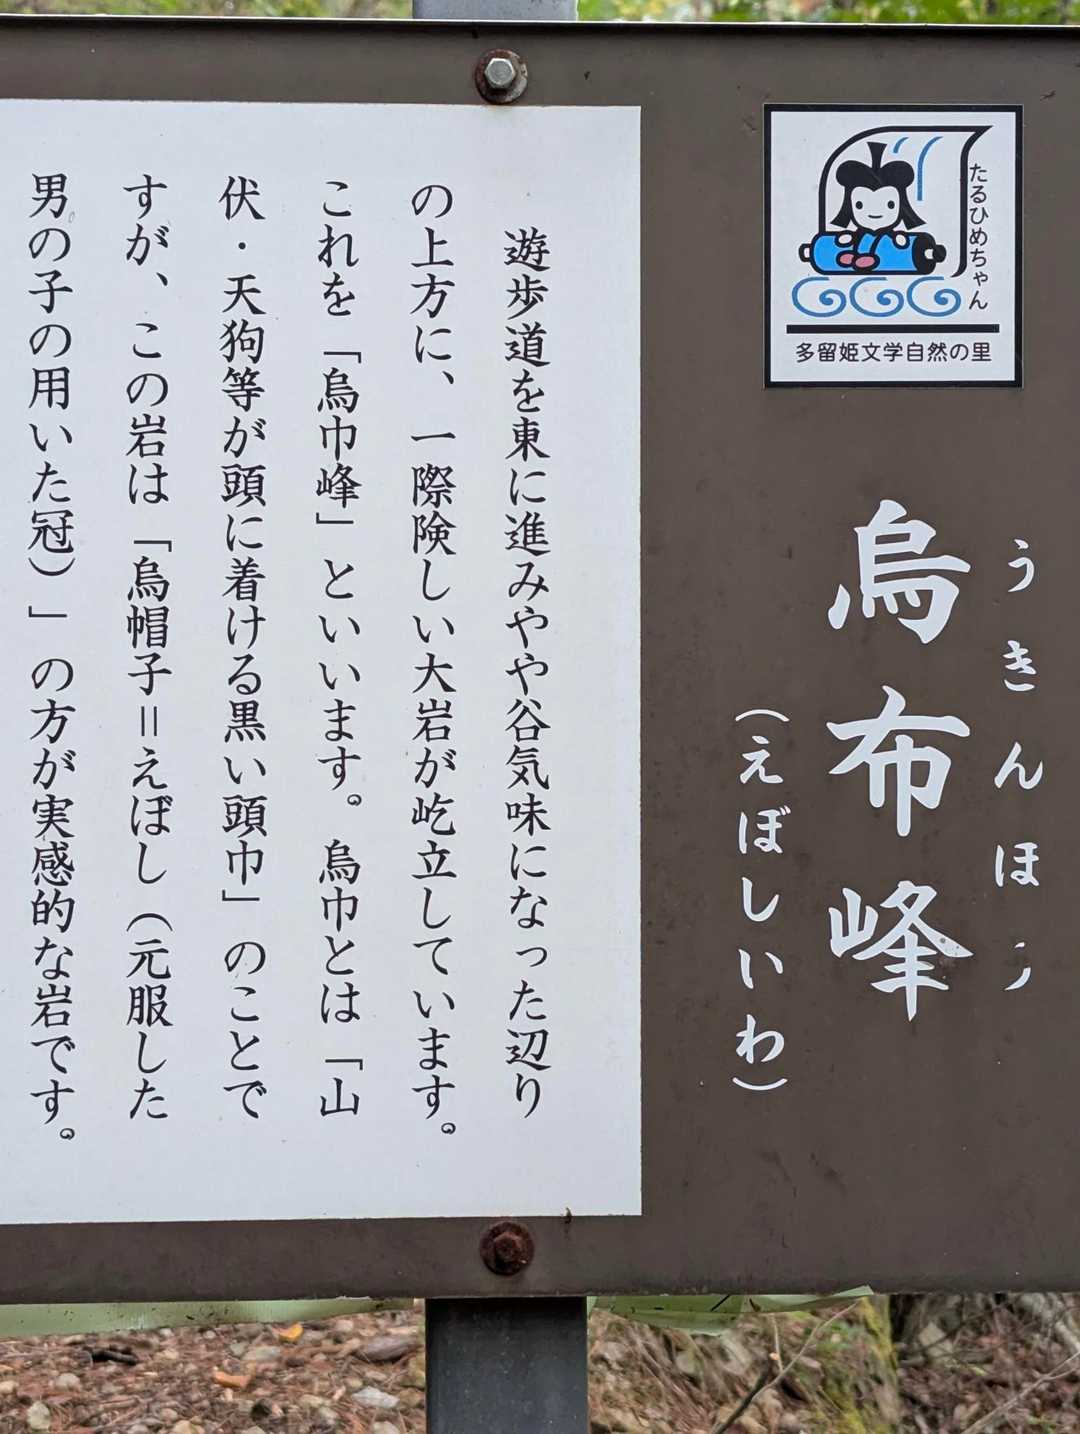 たるひめちゃん
多留姫文学自然の里
うきんほう
烏布峰
（えぼしいわ）
遊歩道を東に進みやや谷気味になった辺り
の上方に、一際険しい大岩が屹立しています。
これを「烏巾峰」といいます。烏巾とは「山
伏・天狗等が頭に着ける黒い頭巾」のことで
すが、この岩は「烏帽子＝えぼし（元服した
男の子の用いた冠）」の方が実感的な岩です。